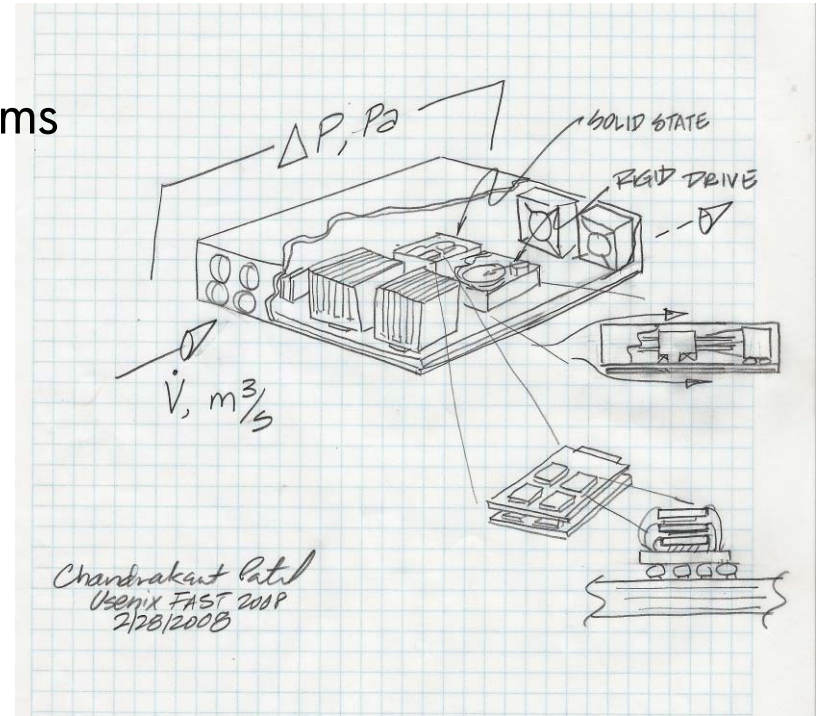 ms
ΔP, Pa
SOLID STATE
RIGID DRIVE
V̇, m³/s
Chandrakant Patel
Usenix FAST 2008
2/28/2008